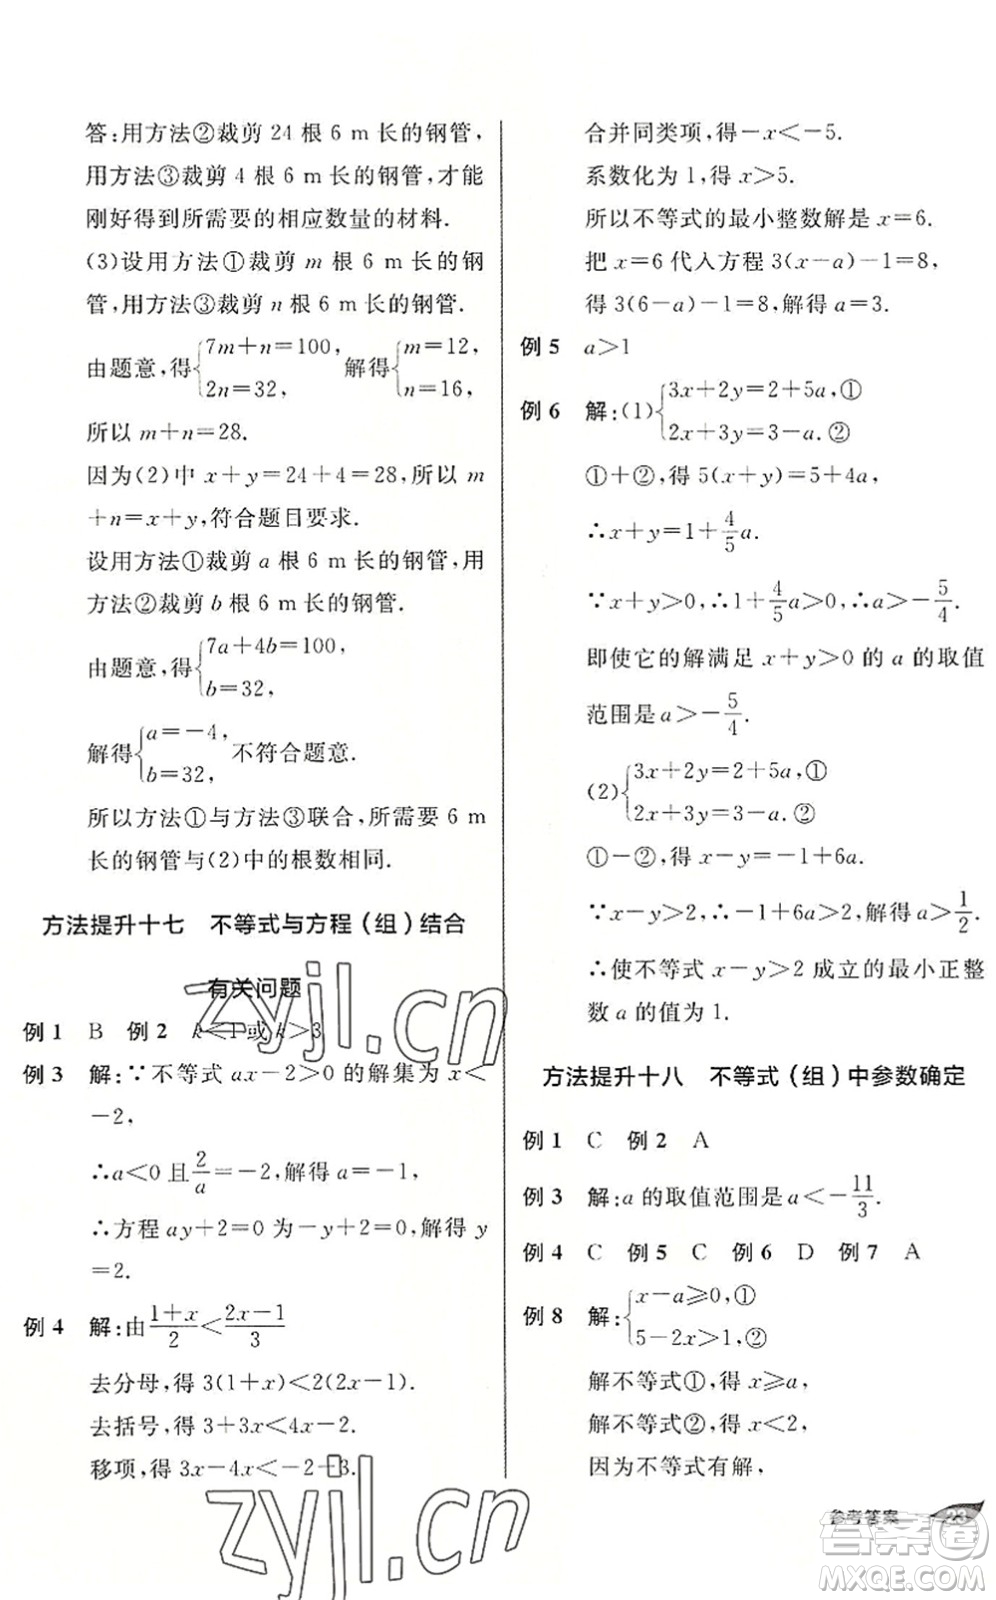 答:用方法②裁剪 24 根 6 m 长的钢管,
用方法③裁剪 4 根 6 m 长的钢管,才能
刚好得到所需要的相应数量的材料.
(3)设用方法①裁剪 m 根 6 m 长的钢
管,用方法③裁剪 n 根 6 m 长的钢管.
由题意,得{7m+n=100, 2n=32, 解得{m=12, n=16,
所以 m+n=28.
因为(2)中 x+y=24+4=28,所以 m
+n=x+y,符合题目要求.
设用方法①裁剪 a 根 6 m 长的钢管,用
方法②裁剪 b 根 6 m 长的钢管.
由题意,得{7a+4b=100, b=32,
解得{a=-4, b=32, 不符合题意.
所以方法①与方法③联合,所需要 6 m
长的钢管与(2)中的根数相同.
方法提升十七 不等式与方程(组)结合
有关问题
例 1 B 例 2 k<1或 k>3
例 3 解:∵不等式 ax-2>0 的解集为 x<
-2,
∴a<0 且 2/a=-2,解得 a=-1,
∴方程 ay+2=0 为-y+2=0,解得 y
=2.
例 4 解:由 (1+x)/2<(2x-1)/3
去分母,得 3(1+x)<2(2x-1).
去括号,得 3+3x<4x-2.
移项,得 3x-4x<-2-3.
合并同类项,得-x<-5.
系数化为 1,得 x>5.
所以不等式的最小整数解是 x=6.
把 x=6 代入方程 3(x-a)-1=8,
得 3(6-a)-1=8,解得 a=3.
例 5 a>1
例 6 解:(1){3x+2y=2+5a,① 2x+3y=3-a.②
①+②,得 5(x+y)=5+4a,
∴x+y=1+4/5a.
∵x+y>0,∴1+4/5a>0,∴a>-5/4.
即使它的解满足 x+y>0 的 a 的取值
范围是 a>-5/4.
(2){3x+2y=2+5a,① 2x+3y=3-a.②
①-②,得 x-y=-1+6a.
∵x-y>2,∴-1+6a>2,解得 a>1/2.
∴使不等式 x-y>2 成立的最小正整
数 a 的值为 1.
方法提升十八 不等式(组)中参数确定
例 1 C 例 2 A
例 3 解:a 的取值范围是 a<-11/3.
例 4 C 例 5 C 例 6 D 例 7 A
例 8 解:{x-a⩾0,① 5-2x>1,②
解不等式①,得 x⩾a,
解不等式②,得 x<2,
因为不等式有解,
参考答案 23
zyjl.cn
zyjl.cn
答案圈
MXQE.COM